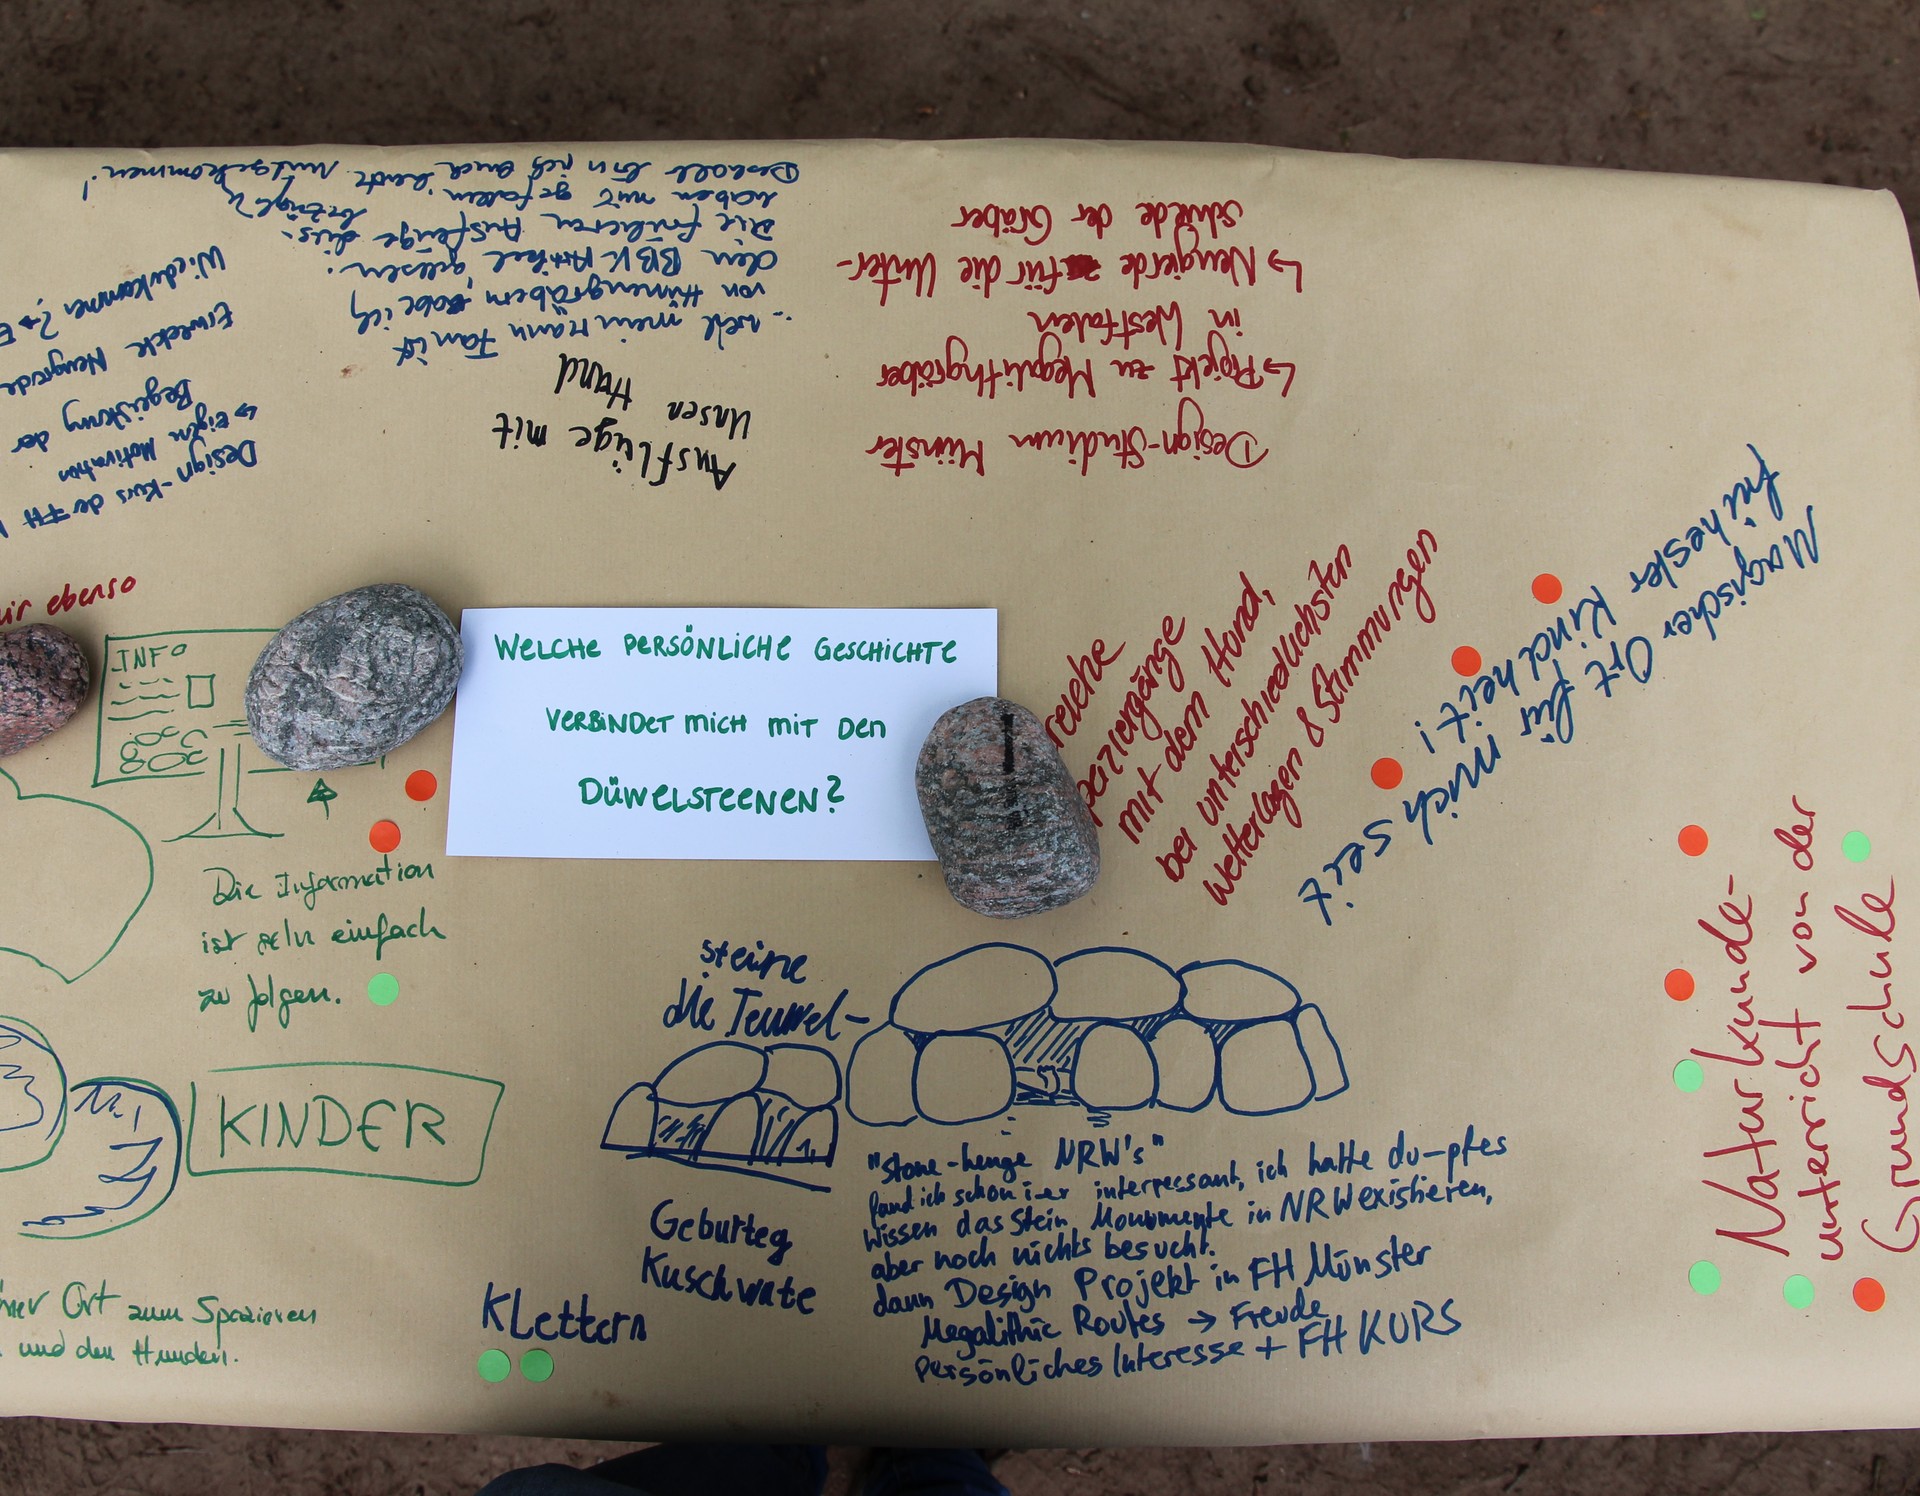 WELCHE PERSÖNLICHE GESCHICHTE
VERBINDET MICH MIT DEN
DÜWELSTEENEN?
Design-Kurs der FH
↳ Eigen Motivation
Begeisterung der
Erweckte Neugierde
Wiederkommen?
Ausflüge mit
Unsen Hund
... weil mein Mann Fan ist
von Hünengräbern, habe ich
den BBK Artikel gelesen.
Die früheren Ausflüge dies-
bezügl.
haben mir gefallen
Deshalb bin ich auch heute mitgekommen!
Design-Studium Münster
↳ Projekt zu Megalithgräber
in Westfalen
↳ Neugierde für die Unter-
schiede der Gräber
ebenso
INFO
Die Information
ist sehr einfach
zu folgen.
KINDER
Ort zum Spazieren
und den Hunden.
Klettern
steine
die Teuwel-
Geburteg
Kuschwate
"Stone-henge NRW's"
fand ich schon interressant, ich hatte du-pfes
Wissen das Stein Monumente in NRW existieren,
aber noch nichts besucht.
dann Design Projekt in FH Münster
Megalithic Routes → Freude
persönliches Interesse + FH KURS
mit dem Hund,
bei unterschiedlichsten
Wetterlagen & Stimmungen
Magischer Ort für mich seit
frühester Kindheit!
Naturkunde-
unterricht von der
Grundschule